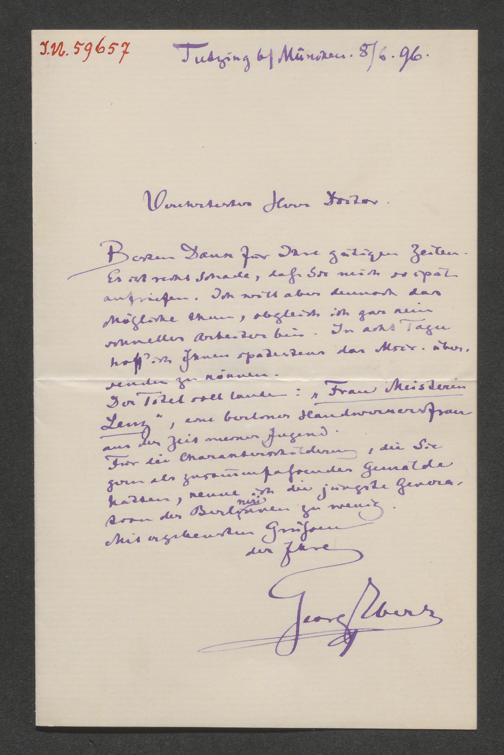 I.N. 59657
Tutzing b/ München. 8/6. 96.
Verehrtester Herr Doctor.
Besten Dank für Ihre gütigen Zeilen.
Es ist recht schade, daß Sie mich so spät
aufriefen. Ich will aber dennoch das
Mögliche thun, obgleich ich gar kein
schneller Arbeiter bin. In acht Tagen
hoff' ich Ihnen spätestens das Mscr. über-
senden zu können.
Der Titel soll lauten: „Frau Meisterin
Lenz", eine berliner Handwerkersfrau
aus der Zeit meiner Jugend.
Für die Charakterschilderung, die Sie
gern als zusammenfassendes Gemälde
hätten, kenne ich die jüngste Genera-
tion der Berlinerinnen zu wenig.
Mit ergebensten Grüßen
der Ihre
Georg Ebers